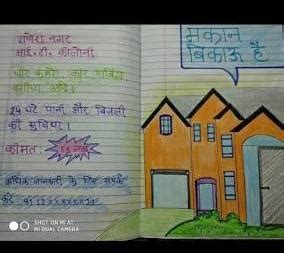 गणेश नगर
आई.टी. कॉलोनी
चार कमरे, कार पार्किंग
बगीचा, आदि।
24 घंटे पानी और बिजली
की सुविधा।
कीमत:
अधिक जानकारी के लिए संपर्क
करें
मकान
बिकाऊ है
SHOT ON MI A1
MI DUAL CAMERA